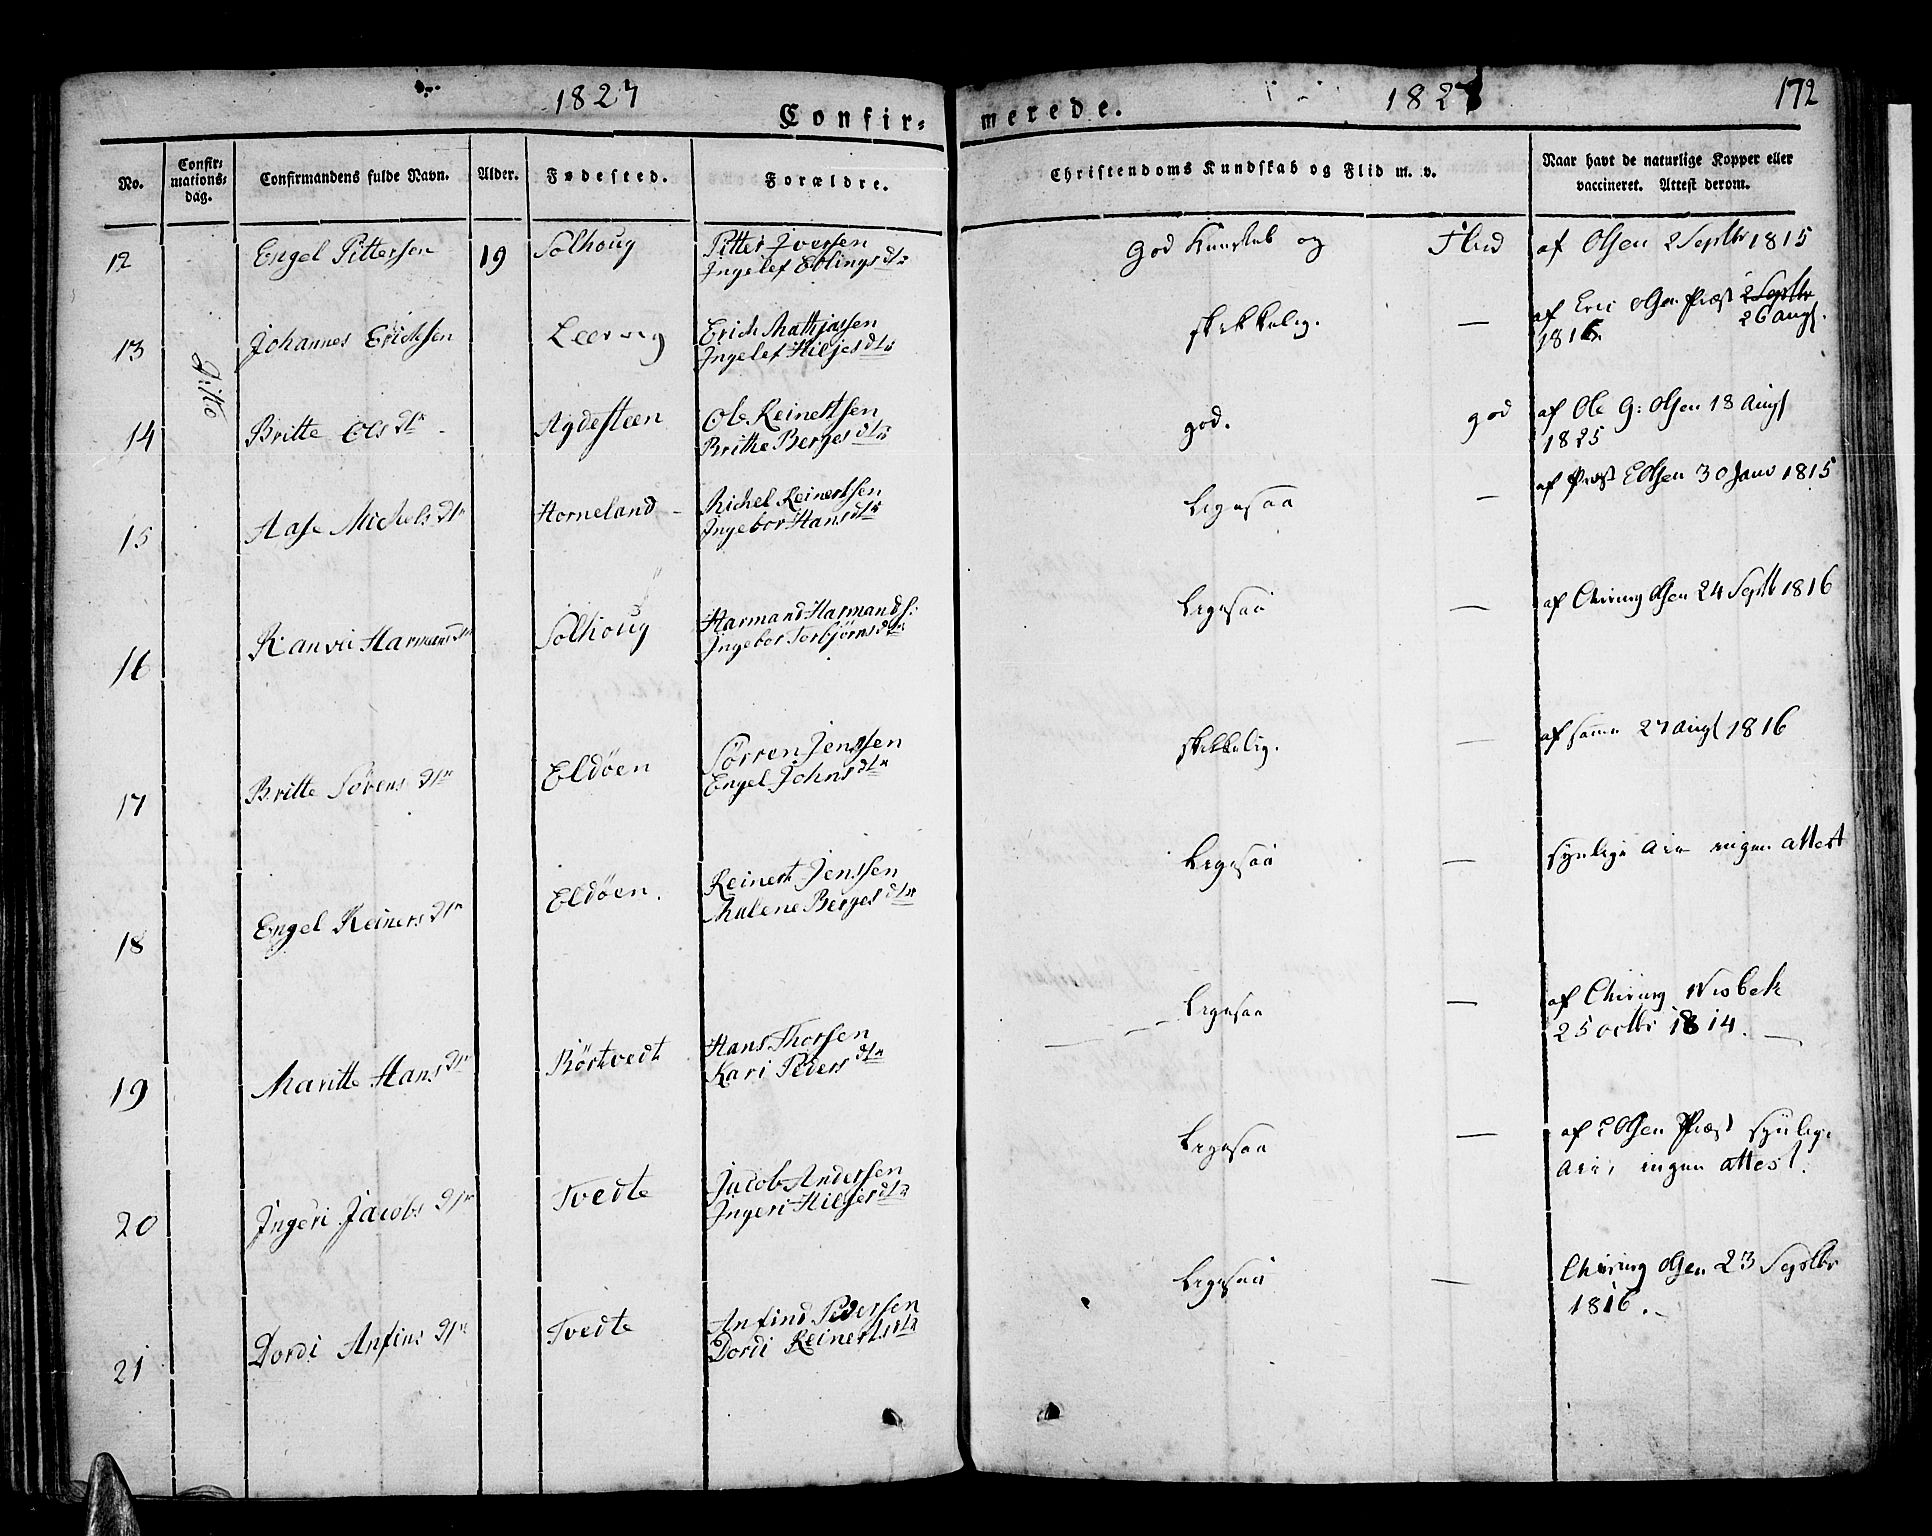 1827
Confir=
merede.
1827
172
No.
Confir=
mations=
dag.
Confirmandens fulde Navn.
Alder.
Fødested.
Forældre.
Christendoms Kundskab og Flid m. v.
Naar havt de naturlige Kopper eller
vaccineret. Attest derom.
12 Engel Pittersen 19 Solhoug Pitter Iversen
Ingelef Eblingsdtr
God Kunskab og Flid af Olsen 2 Septbr 1815
13 Johannes Erichsen Leervig Erich Mathjassen
Ingelef Hiljesdtr
skikkelig. — af Eric Olsen Præst 2 Septbr
26 Augs.
1816
Ditto
14 Britte Olsdtr Agdesteen Ole Reinertsen
Brithe Bergesdtr
god. god af Ole G: Olsen 18 Augs
1825
15 Aase Michelsdtr Horneland Michel Reinertsen
Ingebor Hansdtr
ligesaa — af Præst E Olsen 30 Janv 1815
16 Ranvei Harmandsdtr Solhoug Harmand Harmands:
Ingebor Torbjørnsdtr
ligesaa — af Chirurg Olsen 24 Septb 1816
17 Britte Sørensdtr Eldøen Sørren Jenssen
Engel Johnsdtr
skikkelig. — af samme 27 Augs 1816
18 Engel Reinersdtr Eldøen. Reinert Jenssen
Malene Bergesdtr
ligesaa — synlige Arr ingen attest
19 Maritte Hansdtr Børtvedt Hans Thorsen
Kari Pedersdtr
ligesaa — af Chirurg Nisbek
25 octbr 1814. —
20 Ingeri Jacobsdtr Tvedte Jacob Andersen
Ingeri Hiljesdtr
ligesaa — af E Olsen Præst synlige
Arr, ingen attest.
21 Dordi Anfinsdtr Tvedte Anfind Pedersen
Dordi Reinertsdtr
ligesaa — Chirurg Olsen 23 Septbr
1816. —